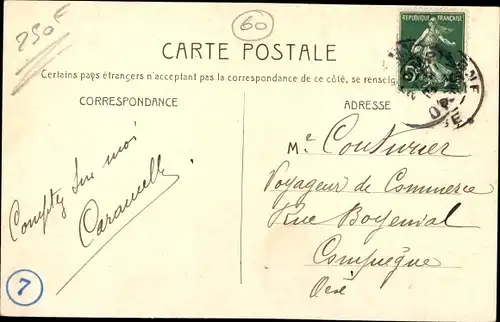 250F
60
RÉPUBLIQUE FRANÇAISE
5c
CARTE POSTALE
Certains pays étrangers n'acceptant pas la correspondance de ce côté, se renseig
CORRESPONDANCE
ADRESSE
Comptez sur moi
Caramelle
Mr Couturier
Voyageur de Commerce
Rue
Compiègne
Oise
7